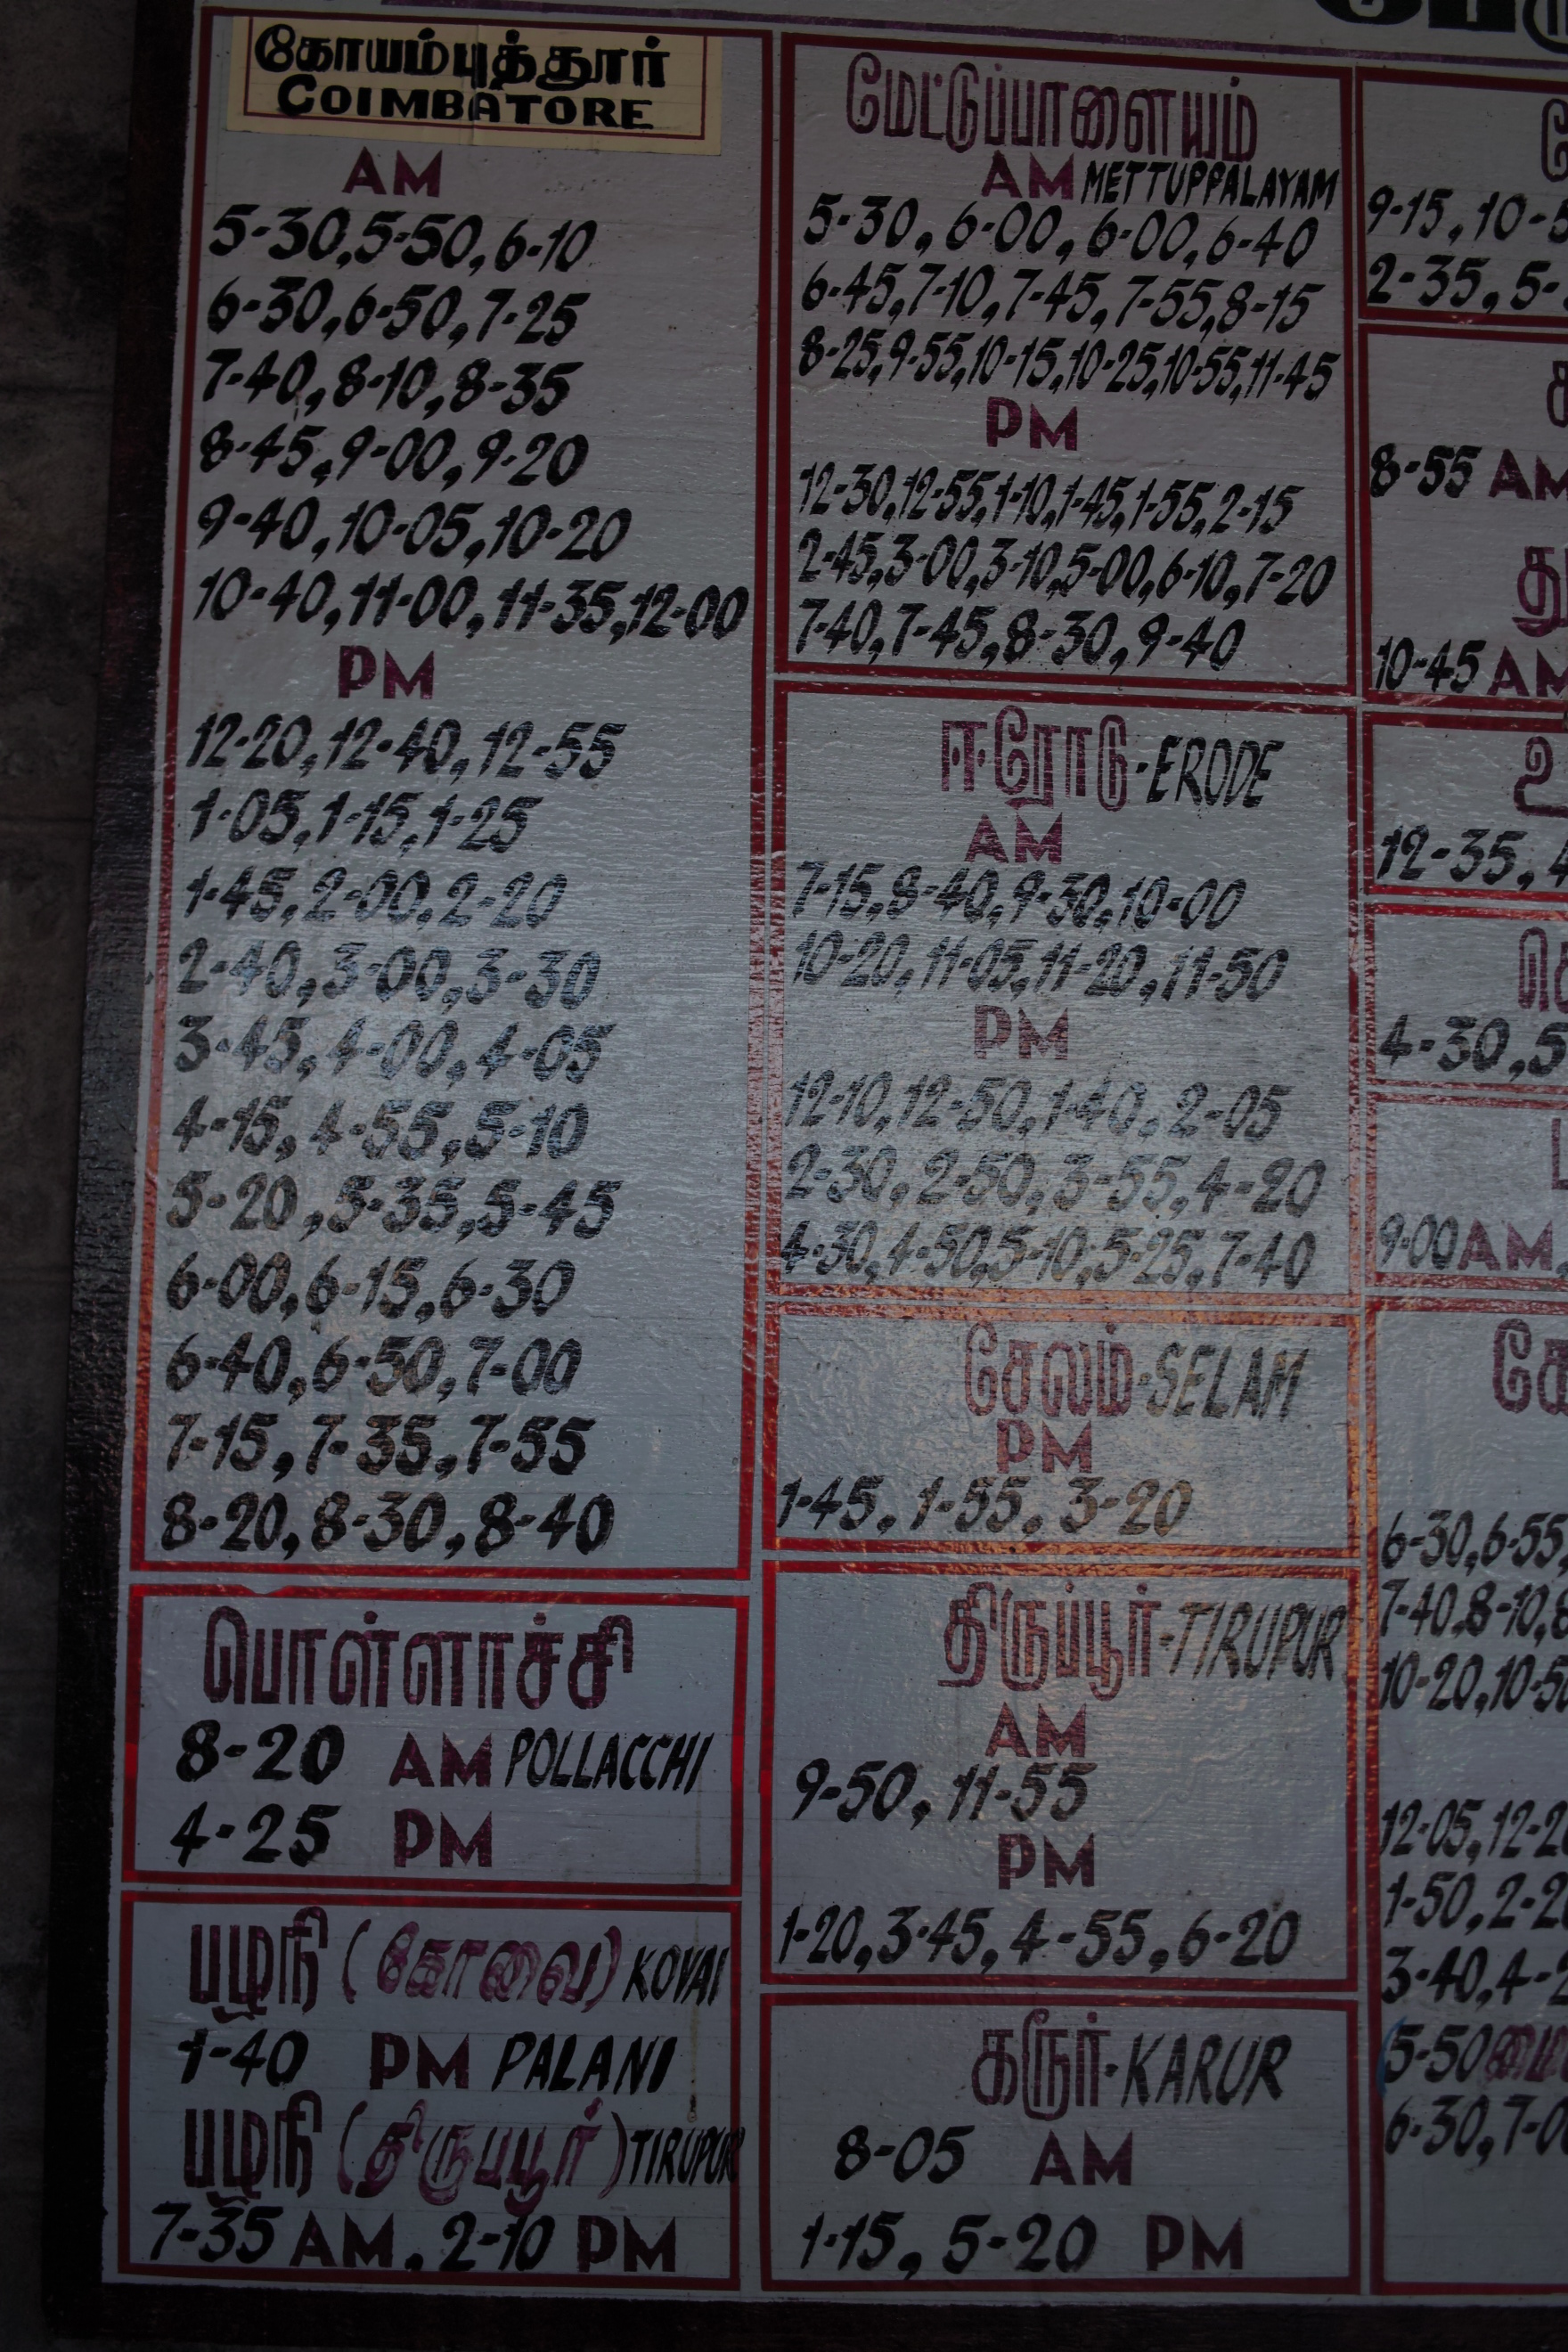 கோயம்புத்தூர்
COIMBATORE
AM
5-30,5-50,6-10
6-30,6-50,7-25
7-40,8-10,8-35
8-45,9-00,9-20
9-40,10-05,10-20
10-40,11-00,11-35,12-00
PM
12-20,12-40,12-55
1-05,1-15,1-25
1-45,2-00,2-20
2-40,3-00,3-30
3-45,4-00,4-05
4-15,4-55,5-10
5-20,5-35,5-45
6-00,6-15,6-30
6-40,6-50,7-00
7-15,7-35,7-55
8-20,8-30,8-40
பொள்ளாச்சி
8-20 AM POLLACCHI
4-25 PM
பழநி (கோவை) KOVAI
1-40 PM PALANI
பழநி (திருப்பூர்) TIRUPUR
7-35 AM, 2-10 PM
மேட்டுப்பாளையம்
AM METTUPPALAYAM
5-30, 6-00, 6-00, 6-40
6-45,7-10,7-45,7-55,8-15
8-25,9-55,10-15,10-25,10-55,11-45
PM
12-30,12-55,1-10,1-45,1-55,2-15
2-45,3-00,3-10,5-00,6-10,7-20
7-40,7-45,8-30,9-40
ஈரோடு-ERODE
AM
7-15,8-40,9-30,10-00
10-20,11-05,11-20,11-50
PM
12-10,12-50,1-40,2-05
2-30,2-50,3-55,4-20
4-30,4-50,5-10,5-25,7-40
சேலம்-SELAM
PM
1-45, 1-55, 3-20
திருப்பூர்-TIRUPUR
AM
9-50, 11-55
PM
1-20,3-45,4-55,6-20
கரூர்-KARUR
8-05 AM
1-15, 5-20 PM
9-15, 10-
2-35, 5-
8-55 AM
10-45 AM
12-35,
4-30,5
9-00 AM,
6-30,6-55,
7-40,8-10,8
10-20,10-50
12-05,12-2
1-50,2-2
3-40,4-2
(5-50
6-30,7-0